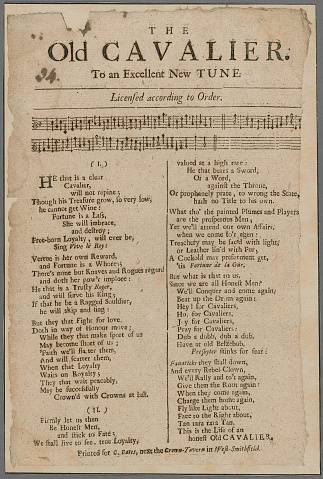 THE
Old CAVALIER.
To an Excellent New TUNE
Licensed according to Order.
(I.)
HE that is a clear
Cavalier,
will not repine;
Though his Treasure grow, so very low,
he cannot get Wine:
Fortune is a Lass,
She will imbrace,
and destroy;
Free-born Loyalty, will ever be,
Sing Vive le Roy:
Vertue is her own Reward,
and Fortune is a Whore;
There's none but Knaves and Rogues regard
and doth her pow'r implore:
He that is a Trusty Roger,
and will serve his King;
If that he be a Ragged Souldier,
he will skip and sing:
But they that fight for love,
Doth in way of Honour move;
While they that make sport of us
May become short of us;
'Faith we'll flatter them,
And will scatter them,
When that Loyalty
Waits on Royalty;
They that wait peaceably,
May be successfully
Crown'd with Crowns at last.
(II.)
Firmly let us then
Be Honest Men,
and stick to Fate;
We shall live to see, true Loyalty,
valued at a high rate:
He that bears a Sword,
Or a Word,
against the Throne,
Or prophanely prate, to wrong the State,
hath no Title to his own.
What tho' the painted Plumes and Players
are the prosperous Men;
Yet we'll attend our own Affairs,
when we come to't agen:
Treachery may be fac'd with light;
or Leather lin'd with Fur;
A Cuckold may preferment get,
'tis Fortune de la Gar,
But what is that to us.
Since we are all Honest Men?
We'll Conquer and come again;
Beat up the Drum again:
Hey! for Cavaliers,
Ho, for Cavaliers,
Pray for Cavaliers:
Dub a dubb, dub a dub,
Have at old Belzebub,
Presbyter stinks for fear:
Fanaticks they shall down,
And every Rebel-Clown,
We'll Rally and to't again,
Give them the Rout again:
When they come again,
Charge them home again,
Fly like Light about,
Face to the Right about,
Tan tara rara Tan.
This is the Life of an
honest Old CAVALIER.
Printed for C. Bates, next the Crown-Tavern in West-Smithfield.